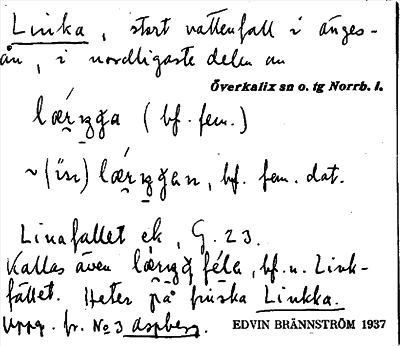 Linka, stort vattenfall i änges-
ån, i nordligaste delen av
Överkalix sn o. tg Norrb. l.
lǽrŋga (bf. fem.)
~ (in) lǽrŋgan, bf. fem. dat.
Linafallet ek, G. 23.
Kallas även lǽrŋg féla, bf. n. Link-
fallet. Heter på finska Linkka.
Uppg. fr. No 3 Aspberg.
EDVIN BRÄNNSTRÖM 1937